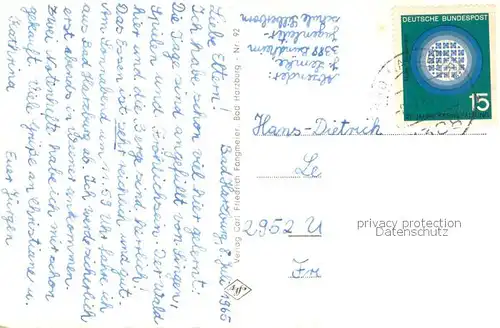 Bad Harzburg, 8. Juli 1965
Liebe Eltern!
Ich habe schon viel hier gelernt.
Die Tage sind angefüllt von Singen,
Spielen und Fröhlichsein. Der Wald
hier und die Berge sind herrlich!
Das Essen ist sehr reichlich und gut.
Am Sonnabend um 11.53 Uhr fahre ich
aus Bad Harzburg ab. Ich werde sicherlich
erst abends in Weener ankommen.
Zwei Naturhefte habe ich mir schon
gekauft. Viele Grüße an Christiane u.
Katharina
Euer Jürgen
Verlag Carl Friedrich Fangmeier, Bad Harzburg - Nr. 92
Absender:
J. Lemke
3388 Bündheim
Jugendleiter-
schule Silberborn
DEUTSCHE BUNDESPOST
15
Hans-Dietrich
Le
2952 U
Fr
privacy protection
watermark